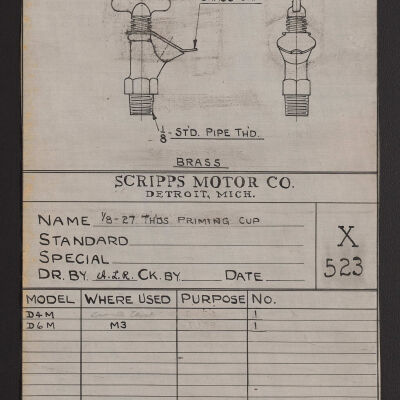 1/8 - ST'D. PIPE TH'D.
BRASS
SCRIPPS MOTOR CO.
DETROIT, MICH.
NAME 1/8-27 THDS PRIMING CUP
STANDARD
SPECIAL
DR. BY A.L.R. CK. BY DATE
X
523
MODEL WHERE USED PURPOSE NO.
D4M 1
D6M M3 1